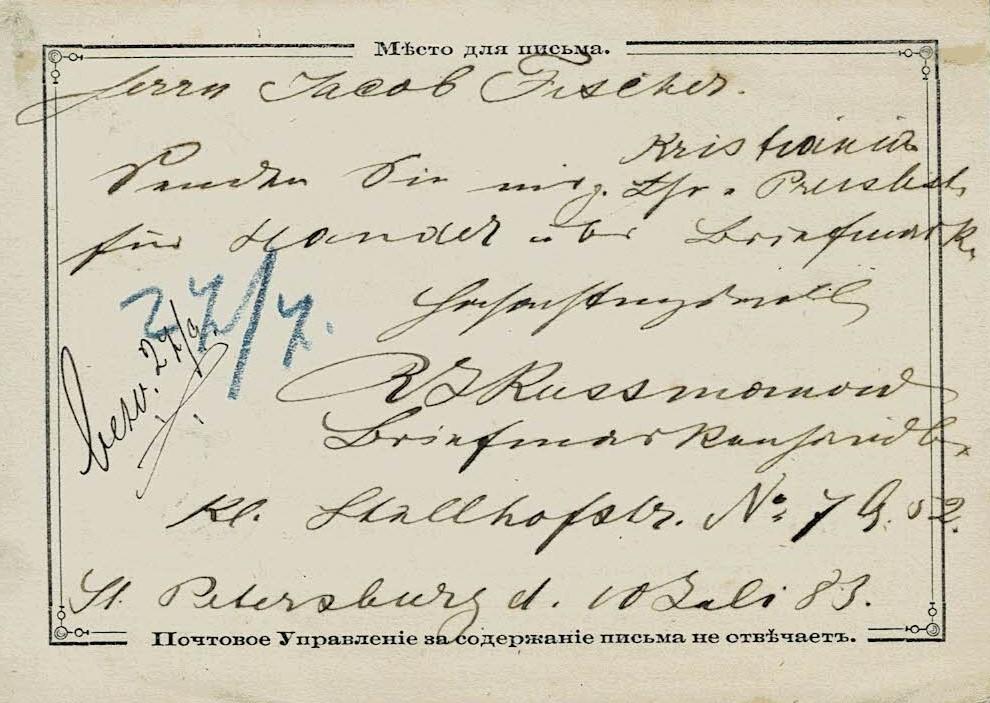 Мѣсто для письма.
Herrn Jacob Fischer.
Kristiania
Senden Sie mir g. Ihr. Preislist.
für Handel über Briefmark.
Hochachtungsvoll
Russmanow
Briefmarkenhändler
27/7.
besv. 27/9.
Kl. Stallhofstr. No 7 Q. 52.
St. Petersburg d. 10 Juli 83.
Почтовое Управленіе за содержаніе письма не отвѣчаетъ.